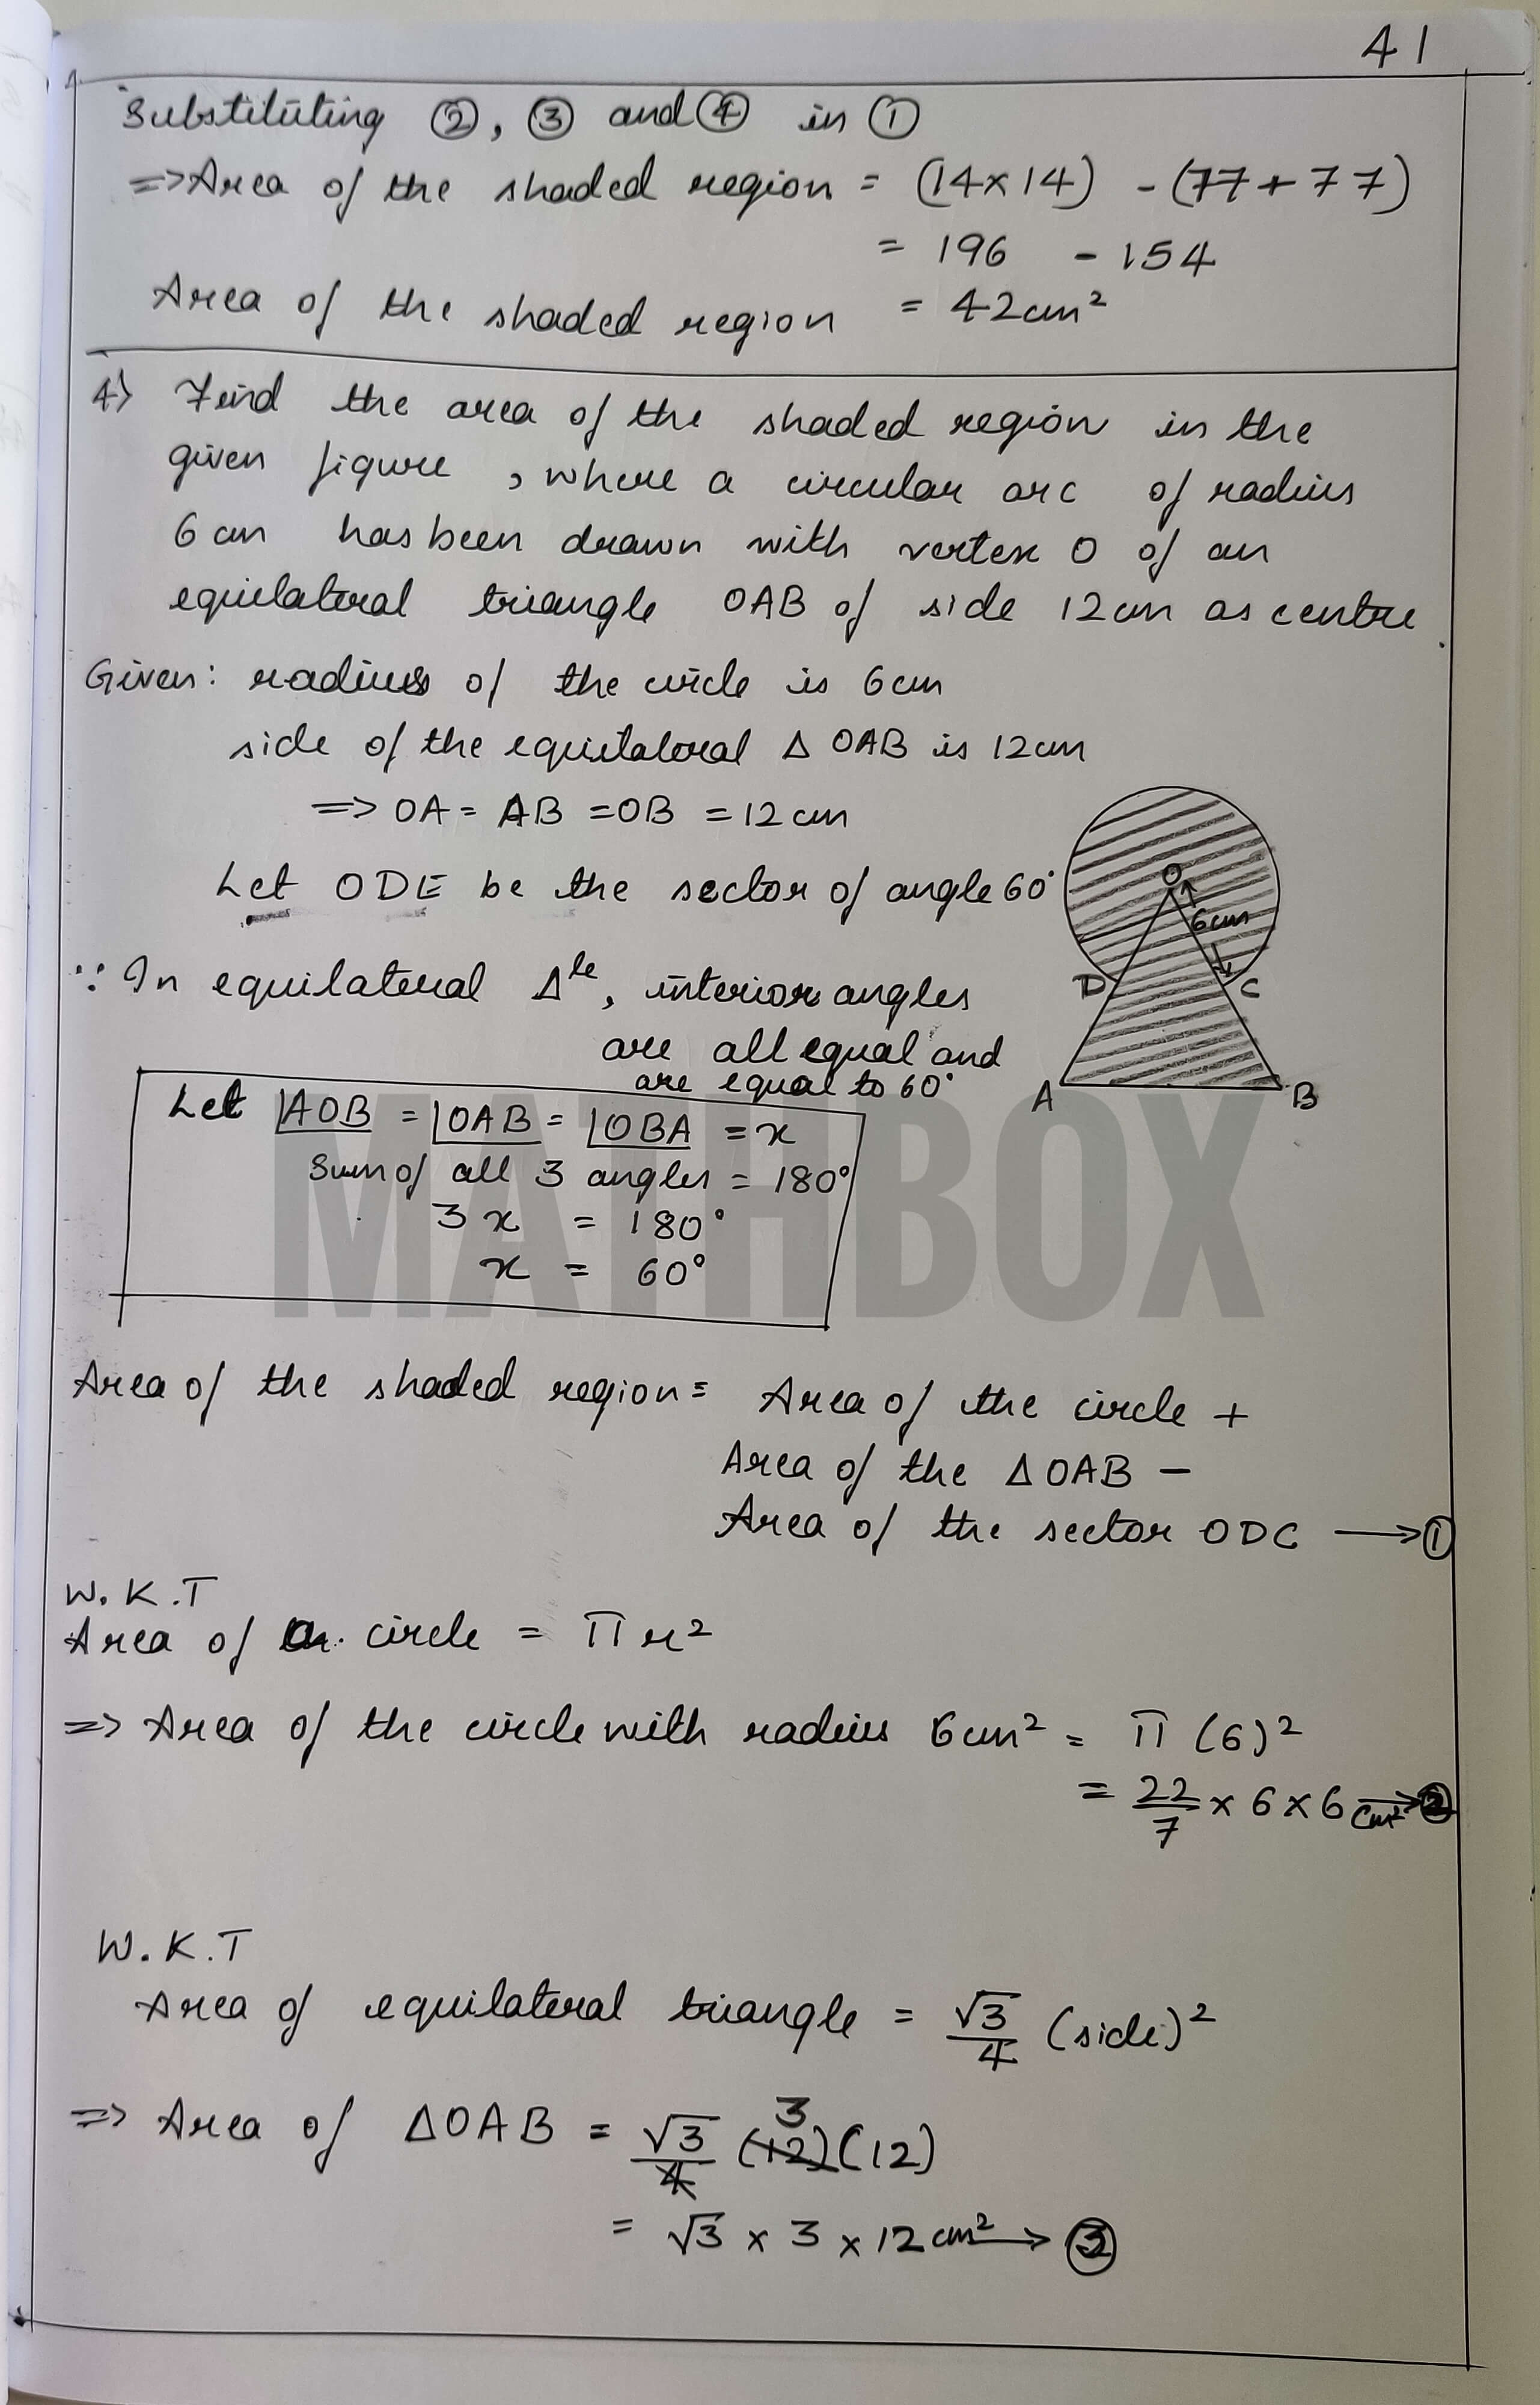 41
Substituting ②, ③ and ④ in ①
=> Area of the shaded region = (14×14) - (77+77)
= 196 - 154
Area of the shaded region = 42cm²
4) Find the area of the shaded region in the
given figure, where a circular arc of radius
6 cm has been drawn with vertex O of an
equilateral triangle OAB of side 12cm as centre.
Given: radius of the circle is 6cm
side of the equilateral Δ OAB is 12cm
=> OA = AB = OB = 12cm
Let ODE be the sector of angle 60°
∵ In equilateral Δle, interior angles
are all equal and
are equal to 60°
O
6cm
D C
A B
Let ∠AOB = ∠OAB = ∠OBA = x
Sum of all 3 angles = 180°
3x = 180°
x = 60°
MATHBOX
Area of the shaded region = Area of the circle +
Area of the Δ OAB -
Area of the sector ODC → ①
W.K.T
Area of a circle = πr²
=> Area of the circle with radius 6cm² = π (6)²
= 22/7 × 6 × 6 cm² → ②
W.K.T
Area of equilateral triangle = √3/4 (side)²
=> Area of ΔOAB = √3/4 (12)(12) 3
= √3 × 3 × 12 cm² → ③